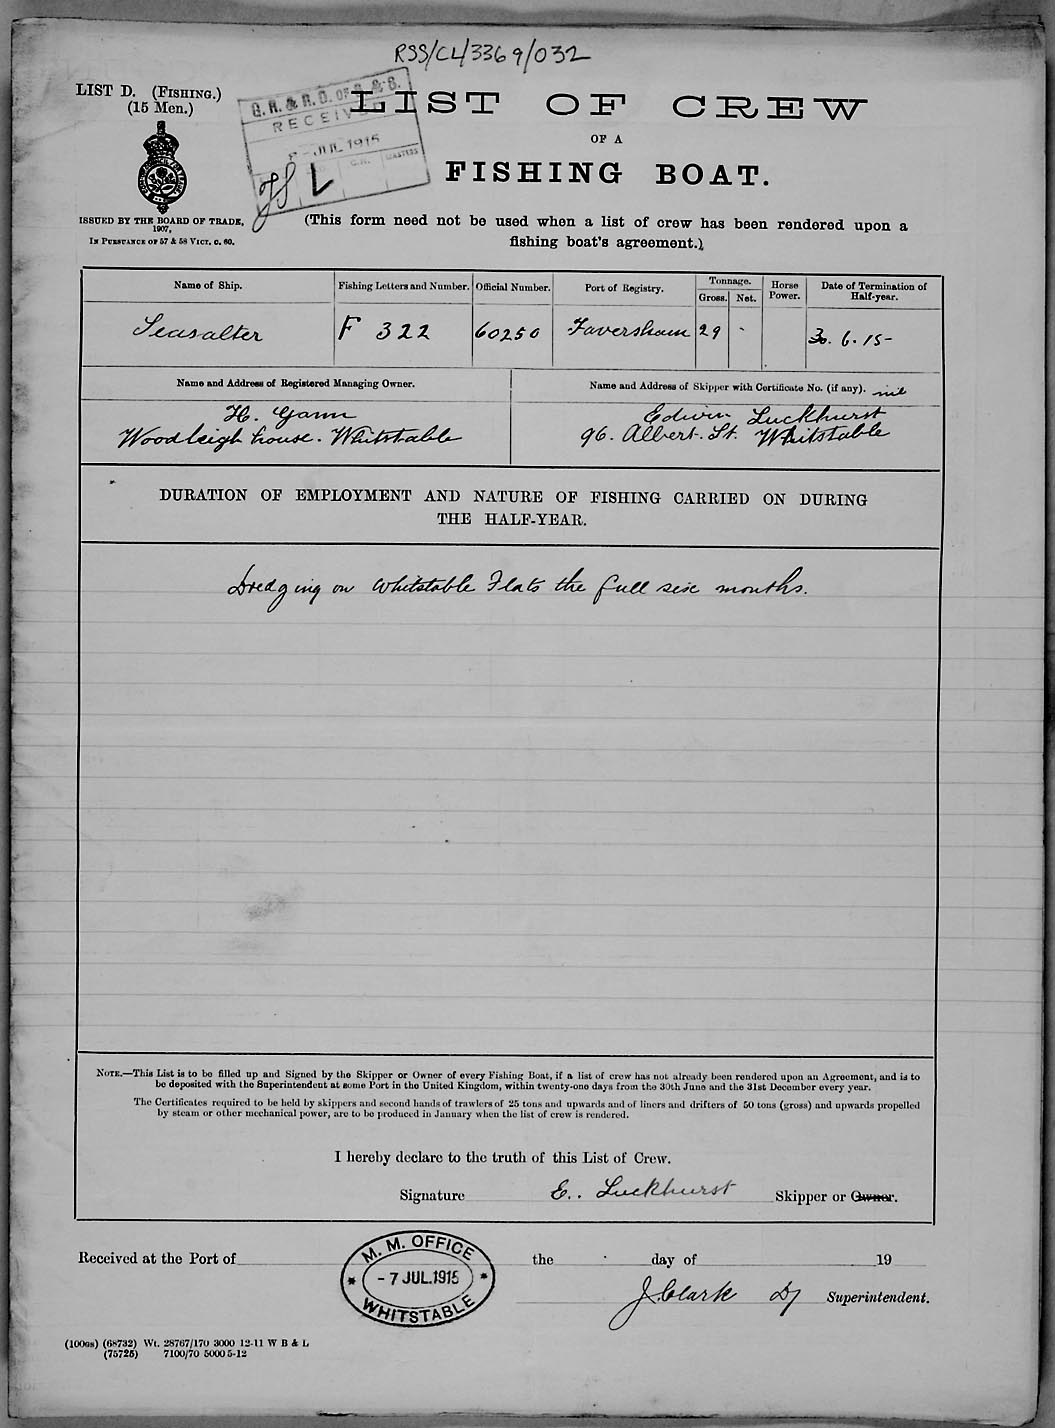 RSS/CL/3369/032
LIST D. (FISHING.)
(15 Men.)
LIST OF CREW
OF A
FISHING BOAT.
G. R. & R. O. OF S. & S.
RECEIVED
JUL 1915
G.R.
MASTERS
L
ISSUED BY THE BOARD OF TRADE,
1907,
IN PURSUANCE OF 57 & 58 VICT. C. 60.
(This form need not be used when a list of crew has been rendered upon a
fishing boat's agreement.)
Name of Ship.
Fishing Letters and Number.
Official Number.
Port of Registry.
Tonnage.
Gross.
Net.
Horse
Power.
Date of Termination of
Half-year.
Seasalter
F 322
60250
Faversham
29
-
30. 6. 15-
Name and Address of Registered Managing Owner.
Name and Address of Skipper with Certificate No. (if any). nil
H. Gann
Woodleigh house. Whitstable
Edwin Luckhurst
96. Albert. St. Whitstable
DURATION OF EMPLOYMENT AND NATURE OF FISHING CARRIED ON DURING
THE HALF-YEAR.
Dredging on Whitstable Flats the full six months.
NOTE.—This List is to be filled up and Signed by the Skipper or Owner of every Fishing Boat, if a list of crew has not already been rendered upon an Agreement, and is to
be deposited with the Superintendent at some Port in the United Kingdom, within twenty-one days from the 30th June and the 31st December every year.
The Certificates required to be held by skippers and second hands of trawlers of 25 tons and upwards and of liners and drifters of 50 tons (gross) and upwards propelled
by steam or other mechanical power, are to be produced in January when the list of crew is rendered.
I hereby declare to the truth of this List of Crew.
Signature E.. Luckhurst Skipper or Owner.
Received at the Port of the day of 19
M. M. OFFICE
- 7 JUL. 1915
WHITSTABLE
J Clark Dy Superintendent.
(100gs) (68732) Wt. 28767/170 3000 12-11 W B & L
(75725) 7100/70 5000 5-12